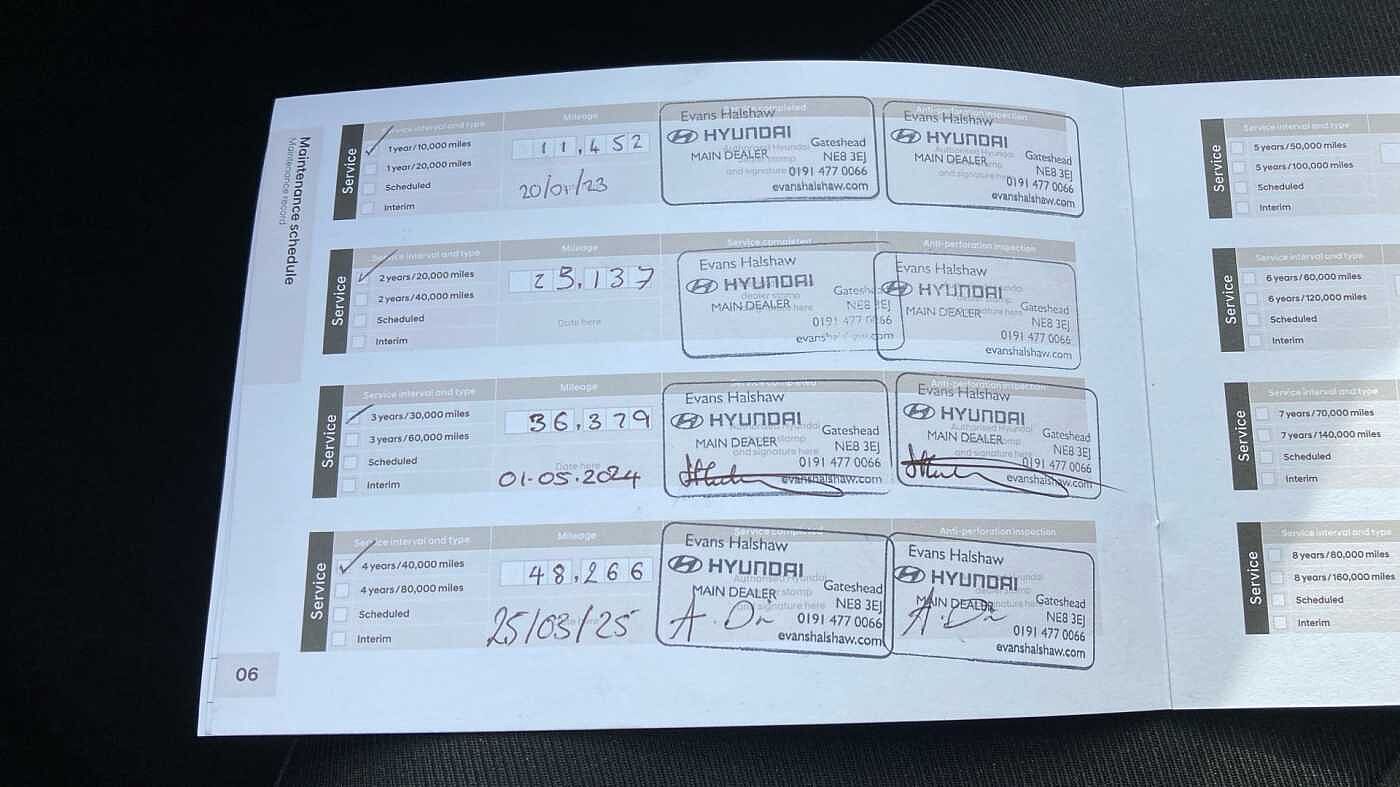 Maintenance schedule
Maintenance record
Service
Service interval and type
Mileage
1 year/10,000 miles
1 year/20,000 miles
Scheduled
Interim
11,452
20/01/23
Service completed
Evans Halshaw
HYUNDAI
MAIN DEALER
Gateshead
NE8 3EJ
and signature
0191 477 0066
evanshalshaw.com
Anti-perforation inspection
Evans Halshaw
HYUNDAI
MAIN DEALER
Gateshead
NE8 3EJ
and signature here
0191 477 0066
evanshalshaw.com
Service
Service interval and type
Mileage
2 years/20,000 miles
2 years/40,000 miles
Scheduled
Interim
25,137
Date here
Service completed
Evans Halshaw
HYUNDAI
MAIN DEALER
Gateshead
NE8 3EJ
0191 477 0066
evanshalshaw.com
Anti-perforation inspection
Evans Halshaw
HYUNDAI
MAIN DEALER
Gateshead
NE8 3EJ
0191 477 0066
evanshalshaw.com
Service
Service interval and type
Mileage
3 years/30,000 miles
3 years/60,000 miles
Scheduled
Interim
36,379
Date here
01-05-2024
Service completed
Evans Halshaw
HYUNDAI
MAIN DEALER
Gateshead
NE8 3EJ
and signature here
0191 477 0066
evanshalshaw.com
Anti-perforation inspection
Evans Halshaw
HYUNDAI
Authorised Hyundai
MAIN DEALER
Gateshead
NE8 3EJ
and signature here
0191 477 0066
evanshalshaw.com
Service
Service interval and type
Mileage
4 years/40,000 miles
4 years/80,000 miles
Scheduled
Interim
48,266
25/03/25
Service completed
Evans Halshaw
HYUNDAI
Authorised Hyundai
MAIN DEALER
Gateshead
signature here
NE8 3EJ
0191 477 0066
evanshalshaw.com
Anti-perforation inspection
Evans Halshaw
HYUNDAI
MAIN DEALER
Gateshead
NE8 3EJ
0191 477 0066
evanshalshaw.com
06
Service
Service interval and type
5 years/50,000 miles
5 years/100,000 miles
Scheduled
Interim
Service
Service interval and type
6 years/60,000 miles
6 years/120,000 miles
Scheduled
Interim
Service
Service interval and type
7 years/70,000 miles
7 years/140,000 miles
Scheduled
Interim
Service
Service interval and type
8 years/80,000 miles
8 years/160,000 miles
Scheduled
Interim